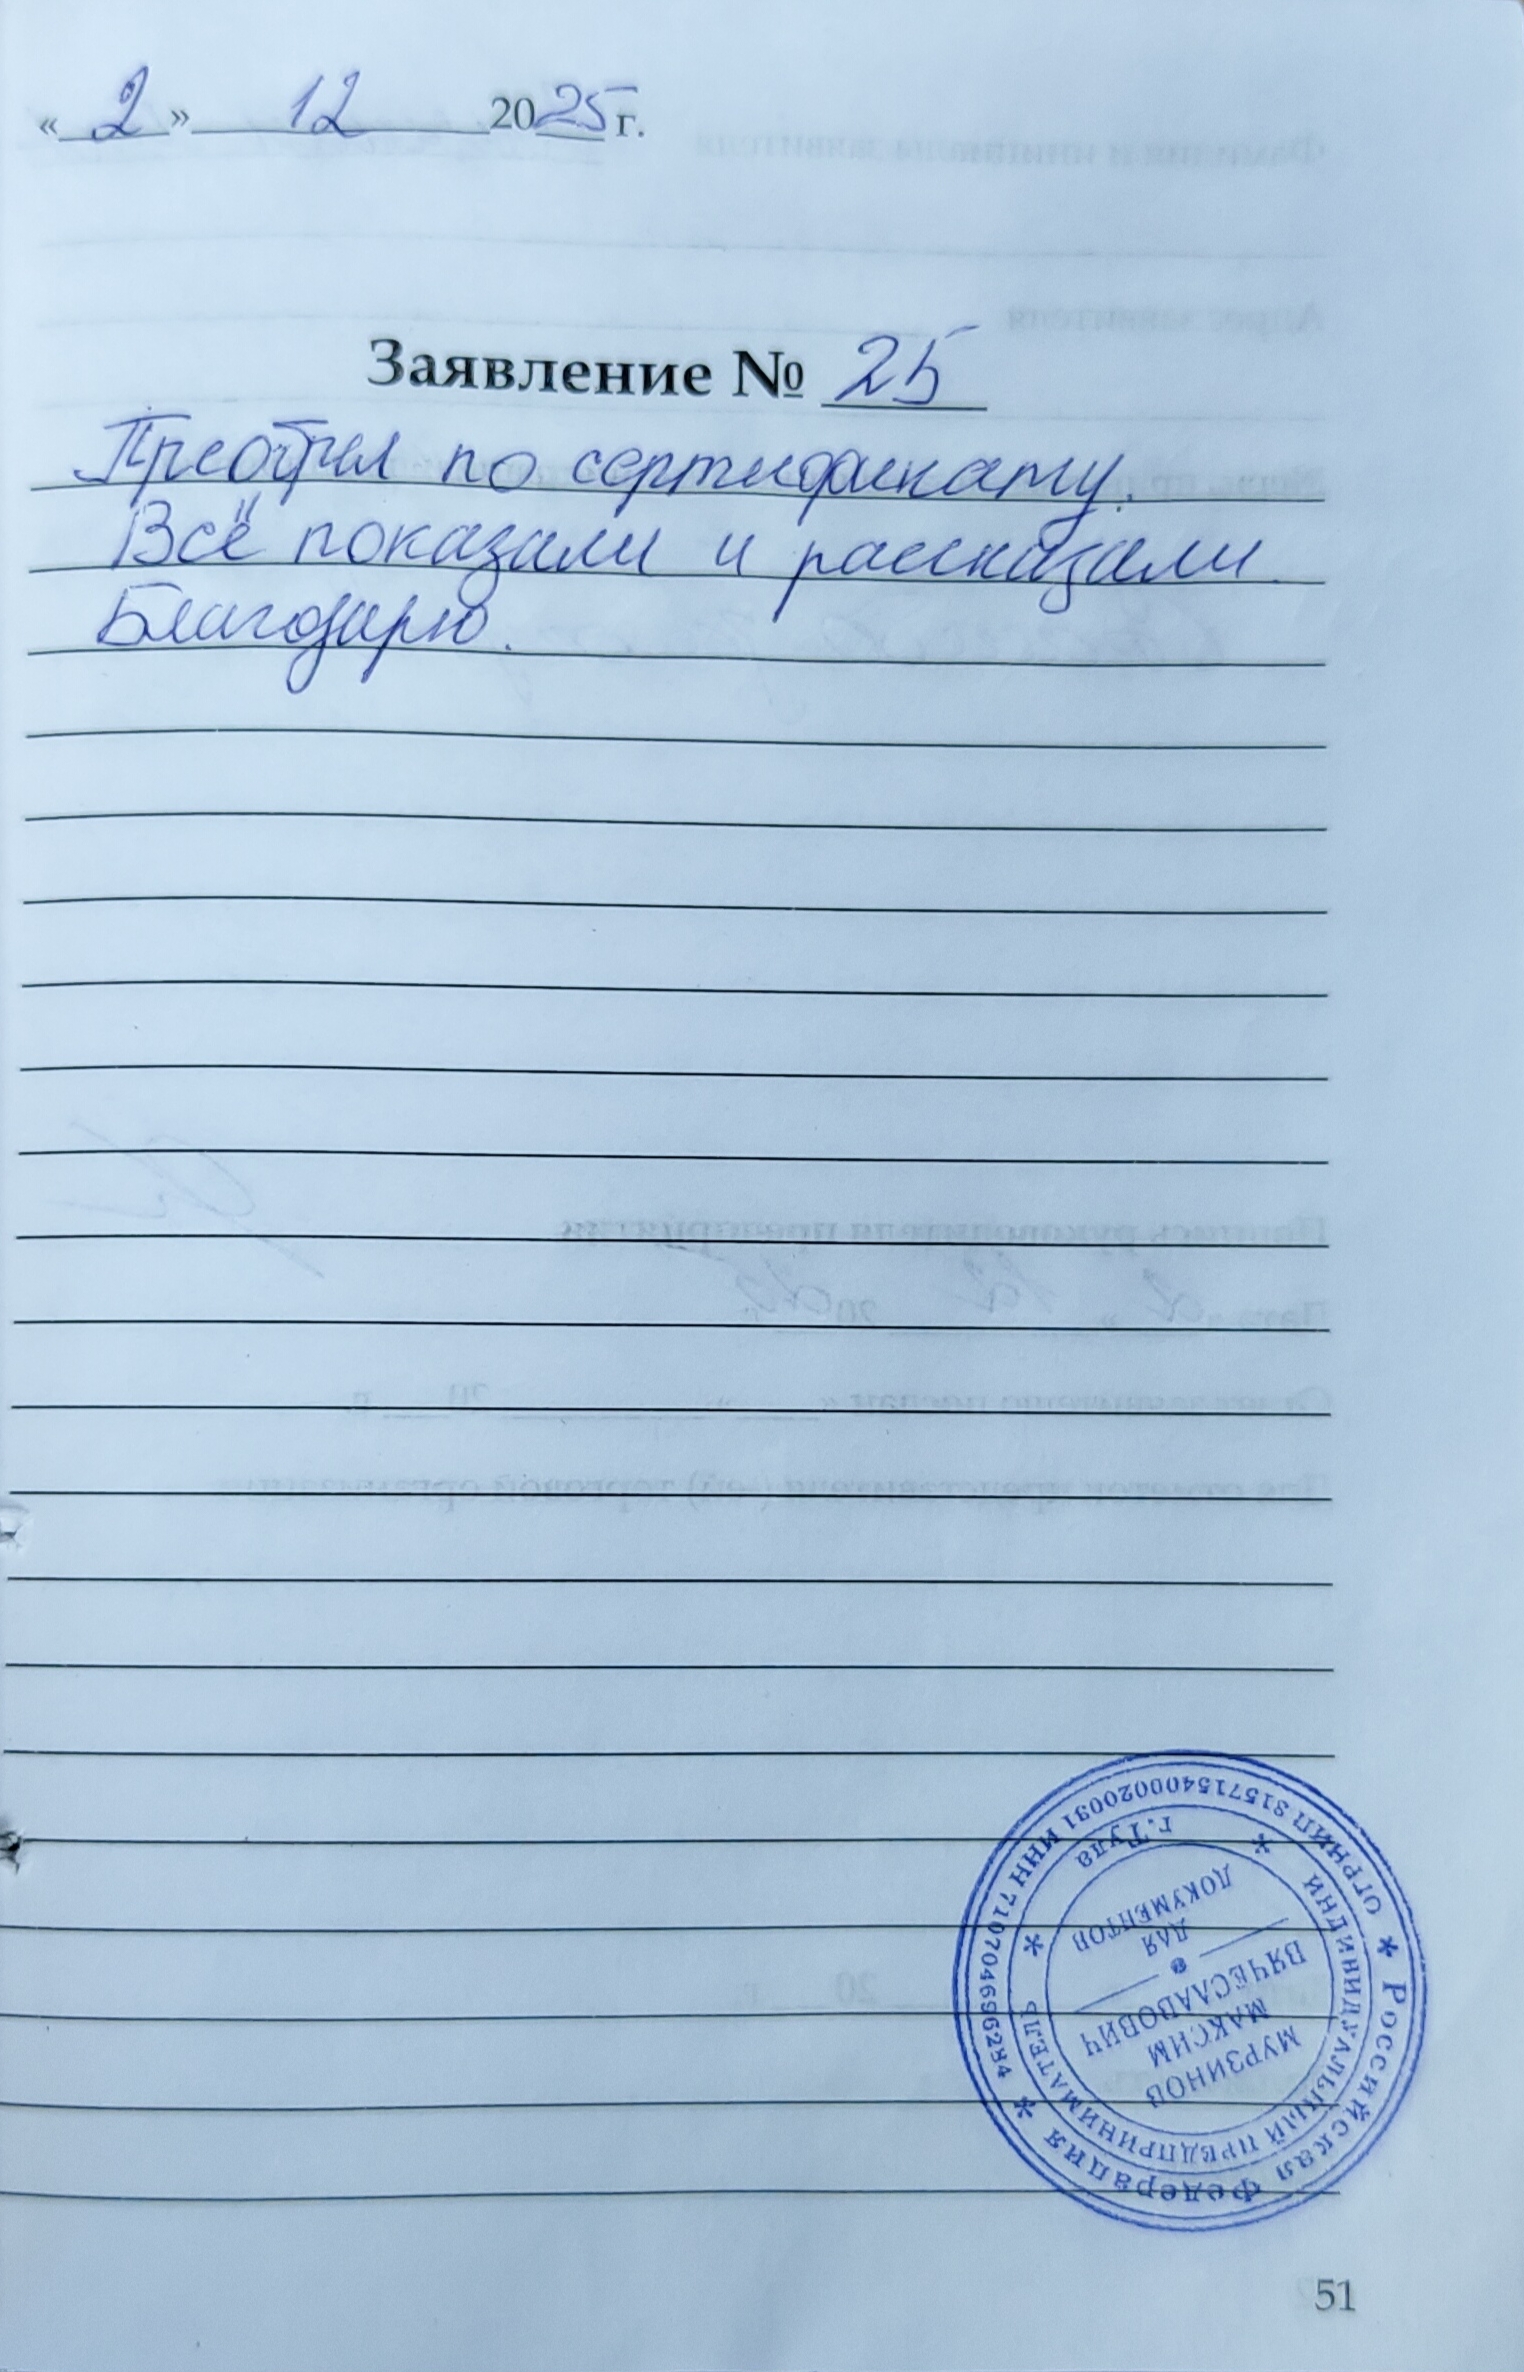 « 2 » 12 2025 г.
Заявление № 25
Преобрел по сертификату.
Всё показали и рассказали.
Благодарю.
* Российская Федерация *
ОГРНИП 315715400020091 ИНН
ИНДИВИДУАЛЬНЫЙ ПРЕДПРИНИМАТЕЛЬ
* г.Тула *
МУРЗИНОВ
МАКСИМ
ВЯЧЕСЛАВОВИЧ
ДЛЯ
ДОКУМЕНТОВ
51